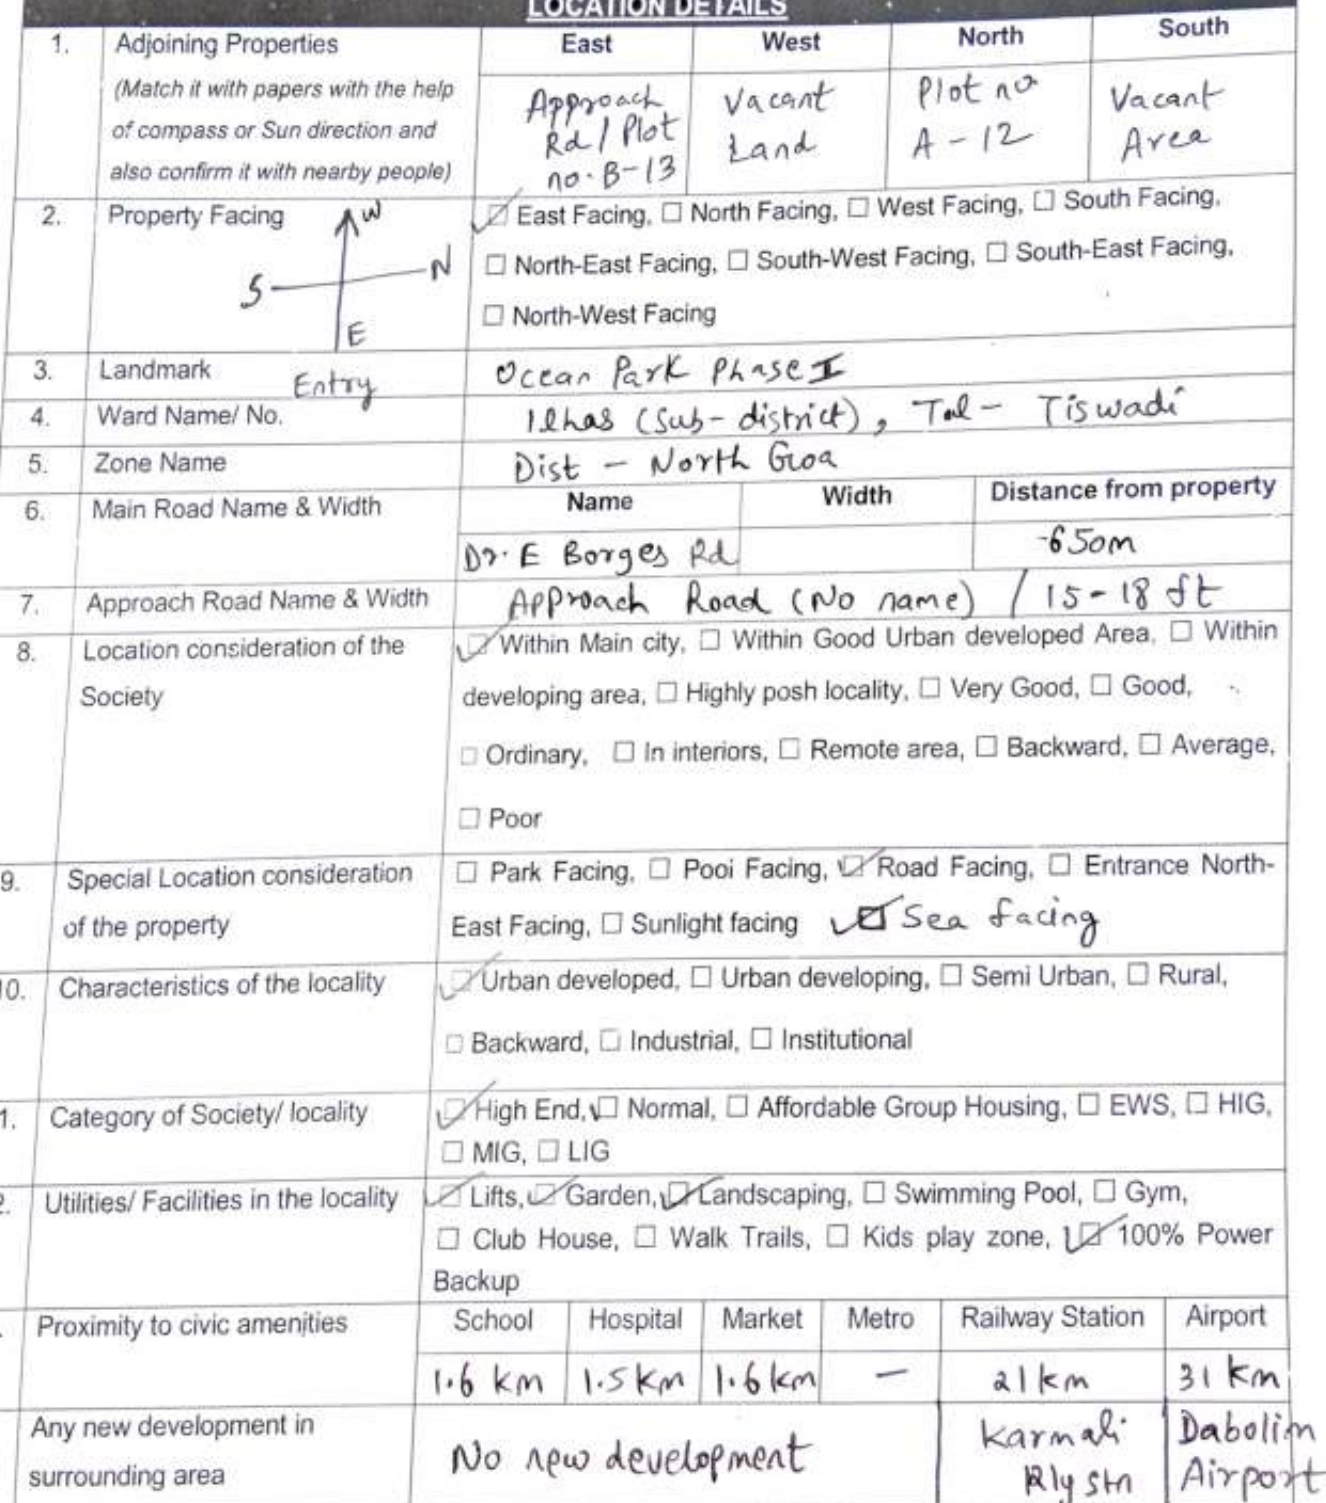 LOCATION DETAILS
1. Adjoining Properties East West North South
(Match it with papers with the help of compass or Sun direction and also confirm it with nearby people)
Approach Rd / Plot no. B-13
Vacant Land
Plot no A-12
Vacant Area
2. Property Facing
W
S N
E
Entry
☑ East Facing, ☐ North Facing, ☐ West Facing, ☐ South Facing,
☐ North-East Facing, ☐ South-West Facing, ☐ South-East Facing,
☐ North-West Facing
3. Landmark Ocean Park Phase I
4. Ward Name/ No. Ilhas (Sub-district), Tal - Tiswadi
5. Zone Name Dist - North Goa
6. Main Road Name & Width Name Width Distance from property
Dr. E Borges Rd 650m
7. Approach Road Name & Width Approach Road (No name) / 15-18 ft
8. Location consideration of the Society
☑ Within Main city, ☐ Within Good Urban developed Area, ☐ Within
developing area, ☐ Highly posh locality, ☐ Very Good, ☐ Good,
☐ Ordinary, ☐ In interiors, ☐ Remote area, ☐ Backward, ☐ Average,
☐ Poor
9. Special Location consideration of the property
☐ Park Facing, ☐ Pool Facing, ☑ Road Facing, ☐ Entrance North-
East Facing, ☐ Sunlight facing ☑ Sea facing
10. Characteristics of the locality
☑ Urban developed, ☐ Urban developing, ☐ Semi Urban, ☐ Rural,
☐ Backward, ☐ Industrial, ☐ Institutional
1. Category of Society/ locality
☑ High End, ☑ Normal, ☐ Affordable Group Housing, ☐ EWS, ☐ HIG,
☐ MIG, ☐ LIG
2. Utilities/ Facilities in the locality
☑ Lifts, ☑ Garden, ☑ Landscaping, ☐ Swimming Pool, ☐ Gym,
☐ Club House, ☐ Walk Trails, ☐ Kids play zone, ☑ 100% Power
Backup
Proximity to civic amenities School Hospital Market Metro Railway Station Airport
1.6 km 1.5 km 1.6 km — 21 km 31 km
Any new development in surrounding area
No new development
Karmali Rly stn
Dabolim Airport